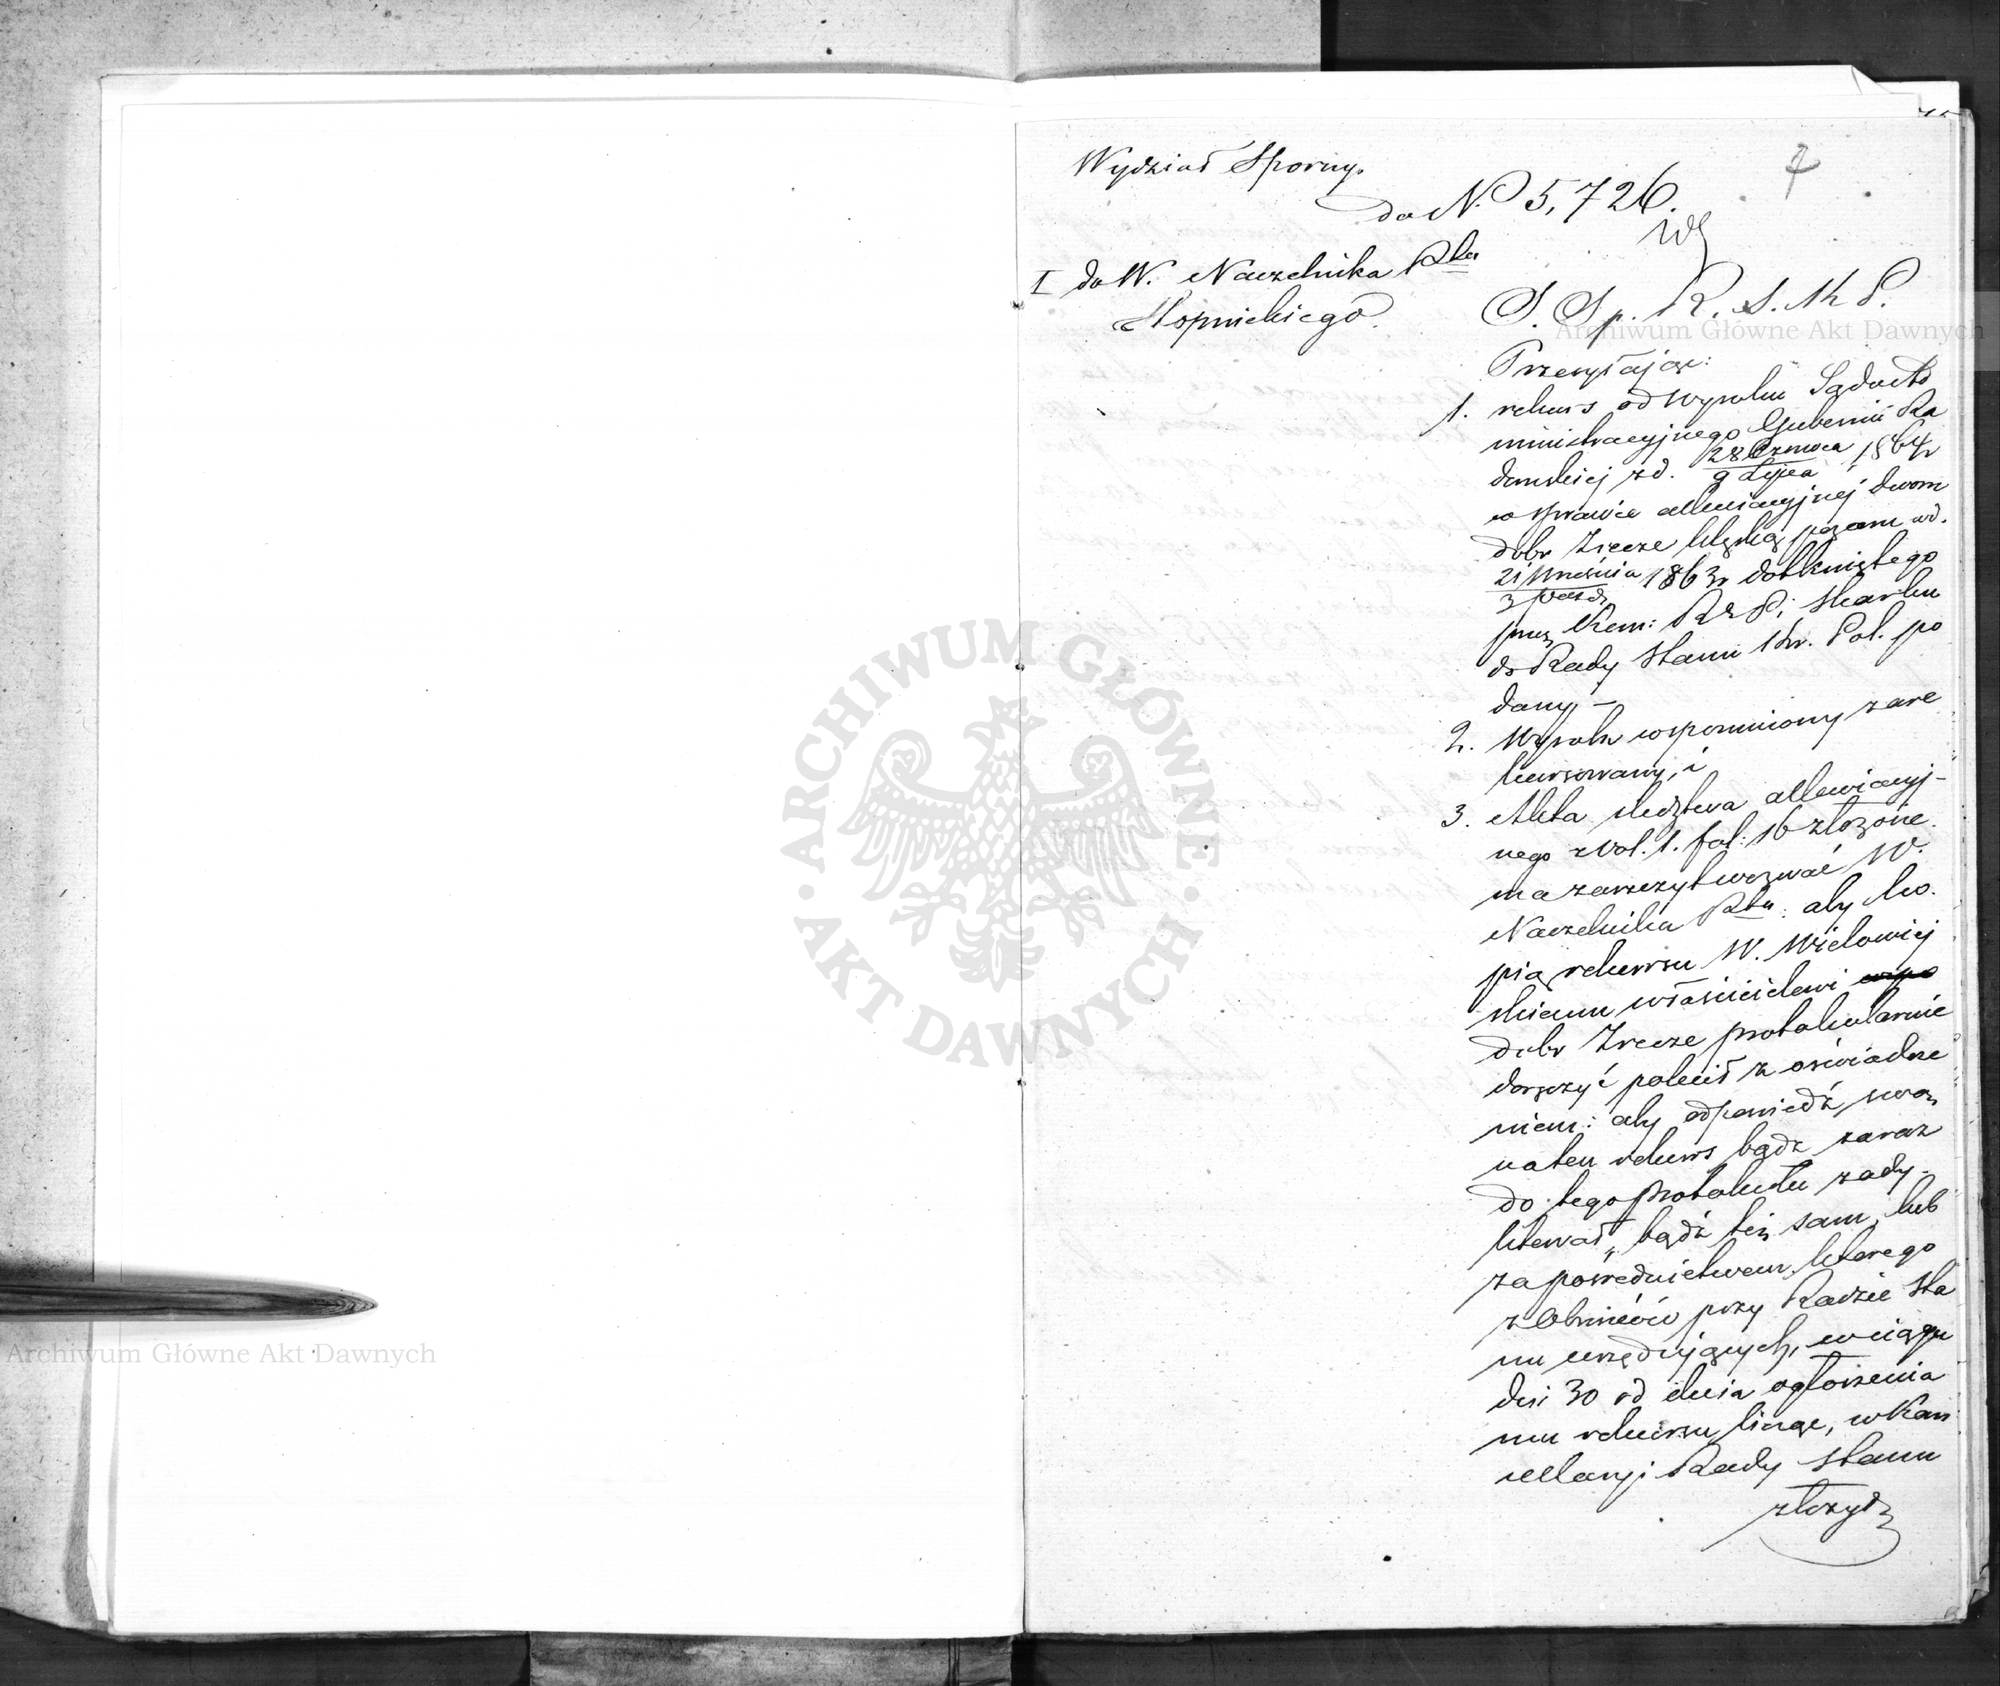 7
Wydział Sporny.
do N. 5,726.
I do W. Naczelnika Ptu
Stopnickiego.
S. Sp. R. S. K P.
Przesyłając:
1. rekurs od wyroku Sądu Ad
ministracyjnego Gubernii Ra
domskiej z d. 28 Czerwca / 9 Lipca 1864 r
w sprawie allewiacyjnej dwom
dobr Zrecze pożarem w d.
21 Września / 3 Paźdz 1863 r dotkniętego
przez Kom: R P i Skarbu
do Rady Stanu Kr. Pol. po
dany –
2. Wyrok wspomniony zare
kursowany, i
3. Akta śledztwa allewiacyj-
nego z Vol. 1. fol: 16 złożone.
ma zaszczyt wezwać W.
Naczelnika Ptu: aby ko.
pią rekursu W. Wielowiej
skiemu właścicielowi
dobr Zrecze protokolarnie
doręczyć polecił z oświadcze
niem: aby odpowiedź swoą
na ten rekurs bądź zaraz
do tego Protokułu zady-
ktował, bądź też sam, lub
za pośrednictwem, którego
z Obrońców przy Radzie Sta
nu urzędujących, w ciągu
dni 30 od dnia ogłoszenia
mu rekursu licząc, w Kan
cellaryi Rady Stanu
złożył
Archiwum Główne Akt Dawnych
Archiwum Główne Akt Dawnych
ARCHIWUM GŁÓWNE · AKT DAWNYCH ·